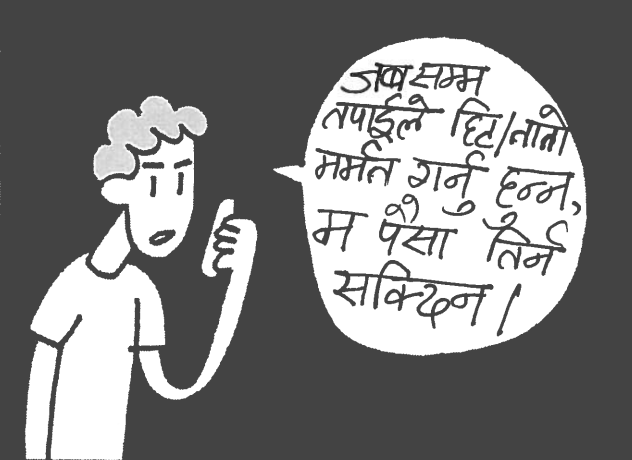 जब सम्म
तपाईले हिट/तातो
मर्मत गर्नु हुन्न,
म पैसा तिर्न
सक्दिन।